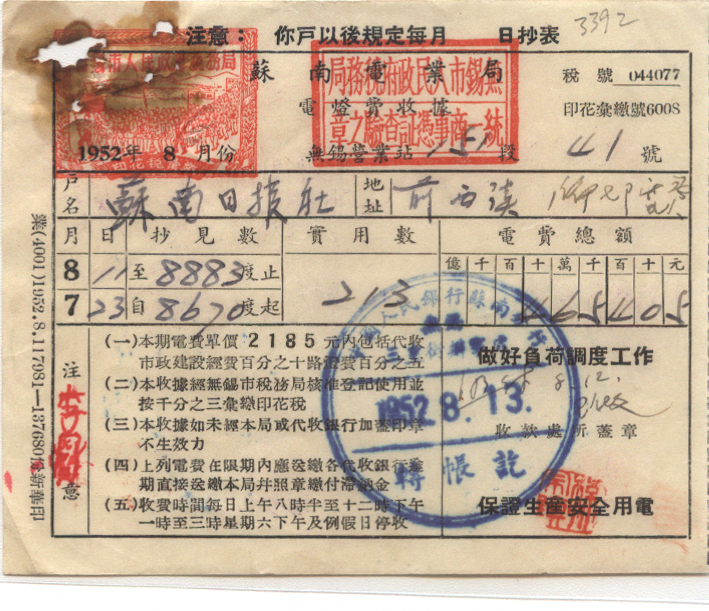 注意： 你戸以後規定每月　日抄表
3392
蘇南電業局
電燈費收據
無錫營業站 151 段 41 號
稅號 044077
印花彙繳號6008
無錫市人民政府稅務局
統一商事憑証查驗之章
1952年 8 月份
戸名 蘇南日报社 地址 前西溪
月 日 抄見數 實用數 電費總額
億千百十萬千百十元
8 11 至 8883 度止
7 23 自 8670 度起
213
465405
注意
(一)本期電費單價 2185 元內包括代收
市政建設經費百分之十路燈費百分之五
(二)本收據經無錫市稅務局核准登記使用並
按千分之三彙繳印花稅
(三)本收據如未經本局或代收銀行加蓋印章
不生效力
(四)上列電費在限期內應送繳各代收銀行逾
期直接送繳本局幷照章繳付滯納金
(五)收費時間每日上午八時半至十二時下午
一時至三時星期六下午及例假日停收
做好負荷調度工作
收款處所蓋章
保證生產安全用電
中國人民銀行蘇南分行
1952. 8. 13.
轉帳訖
業(4001)1952.8.117981—137680份新華印